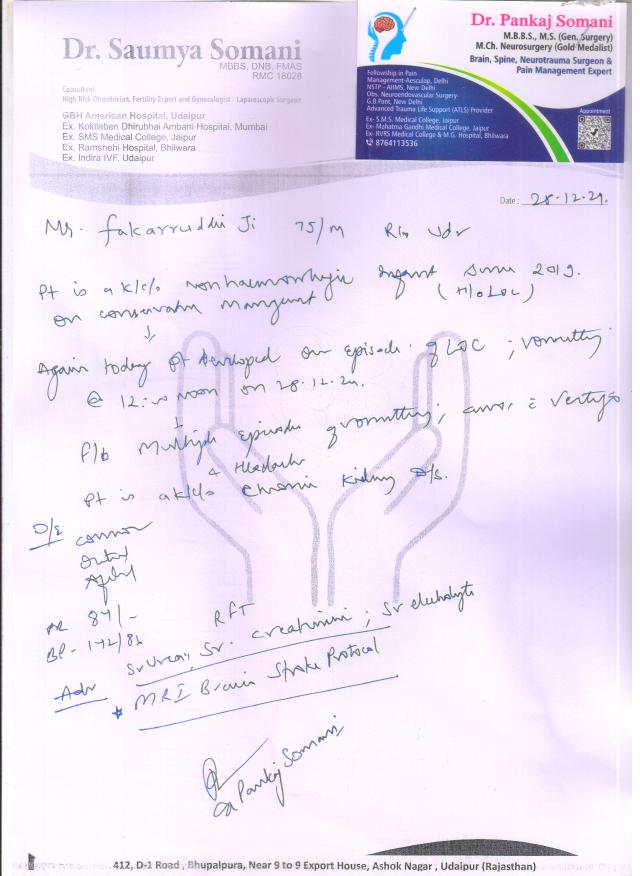 Dr. Saumya Somani
MBBS, DNB, FMAS
RMC 18028
Consultant
High Risk Obstetrician, Fertility Expert and Gynecologist - Laparoscopic Surgeon
GBH American Hospital, Udaipur
Ex. Kokilaben Dhirubhai Ambani Hospital, Mumbai
Ex. SMS Medical College, Jaipur
Ex. Ramsnehi Hospital, Bhilwara
Ex. Indira IVF, Udaipur
Dr. Pankaj Somani
M.B.B.S., M.S. (Gen. Surgery)
M.Ch. Neurosurgery (Gold Medalist)
Brain, Spine, Neurotrauma Surgeon &
Pain Management Expert
Fellowship in Pain
Management-Aesculap, Delhi
NSTP - AIIMS, New Delhi
Obs. Neuroendovascular Surgery-
G.B.Pant, New Delhi
Advanced Trauma Life Support (ATLS) Provider
Ex- S.M.S. Medical College, Jaipur
Ex- Mahatma Gandhi Medical College, Jaipur
Ex- RVRS Medical College & M.G. Hospital, Bhilwara
8764113536
Appointment
Date : 28.12.24.
Mr. fakarruddin Ji 75/M R/o Udr
Pt is a k/c/o non haemorrhagic Infarct since 2019.
on conservative (H/o LOC)
Again today pt developed one episode of LOC ; vomitting
@ 12:00 noon on 28.12.24.
f/b Multiple episodes of vomitting; Vertigo
& Headache
Pt is a k/c/o chronic kidney
O/E conscious
PR 84/-
BP - 142/82
RFT
Adv Sr Urea, Sr. creatinine ; Sr electrolyte
* MRI Brain Stroke Protocol
Pankaj Somani
412, D-1 Road , Bhupalpura, Near 9 to 9 Export House, Ashok Nagar , Udaipur (Rajasthan)